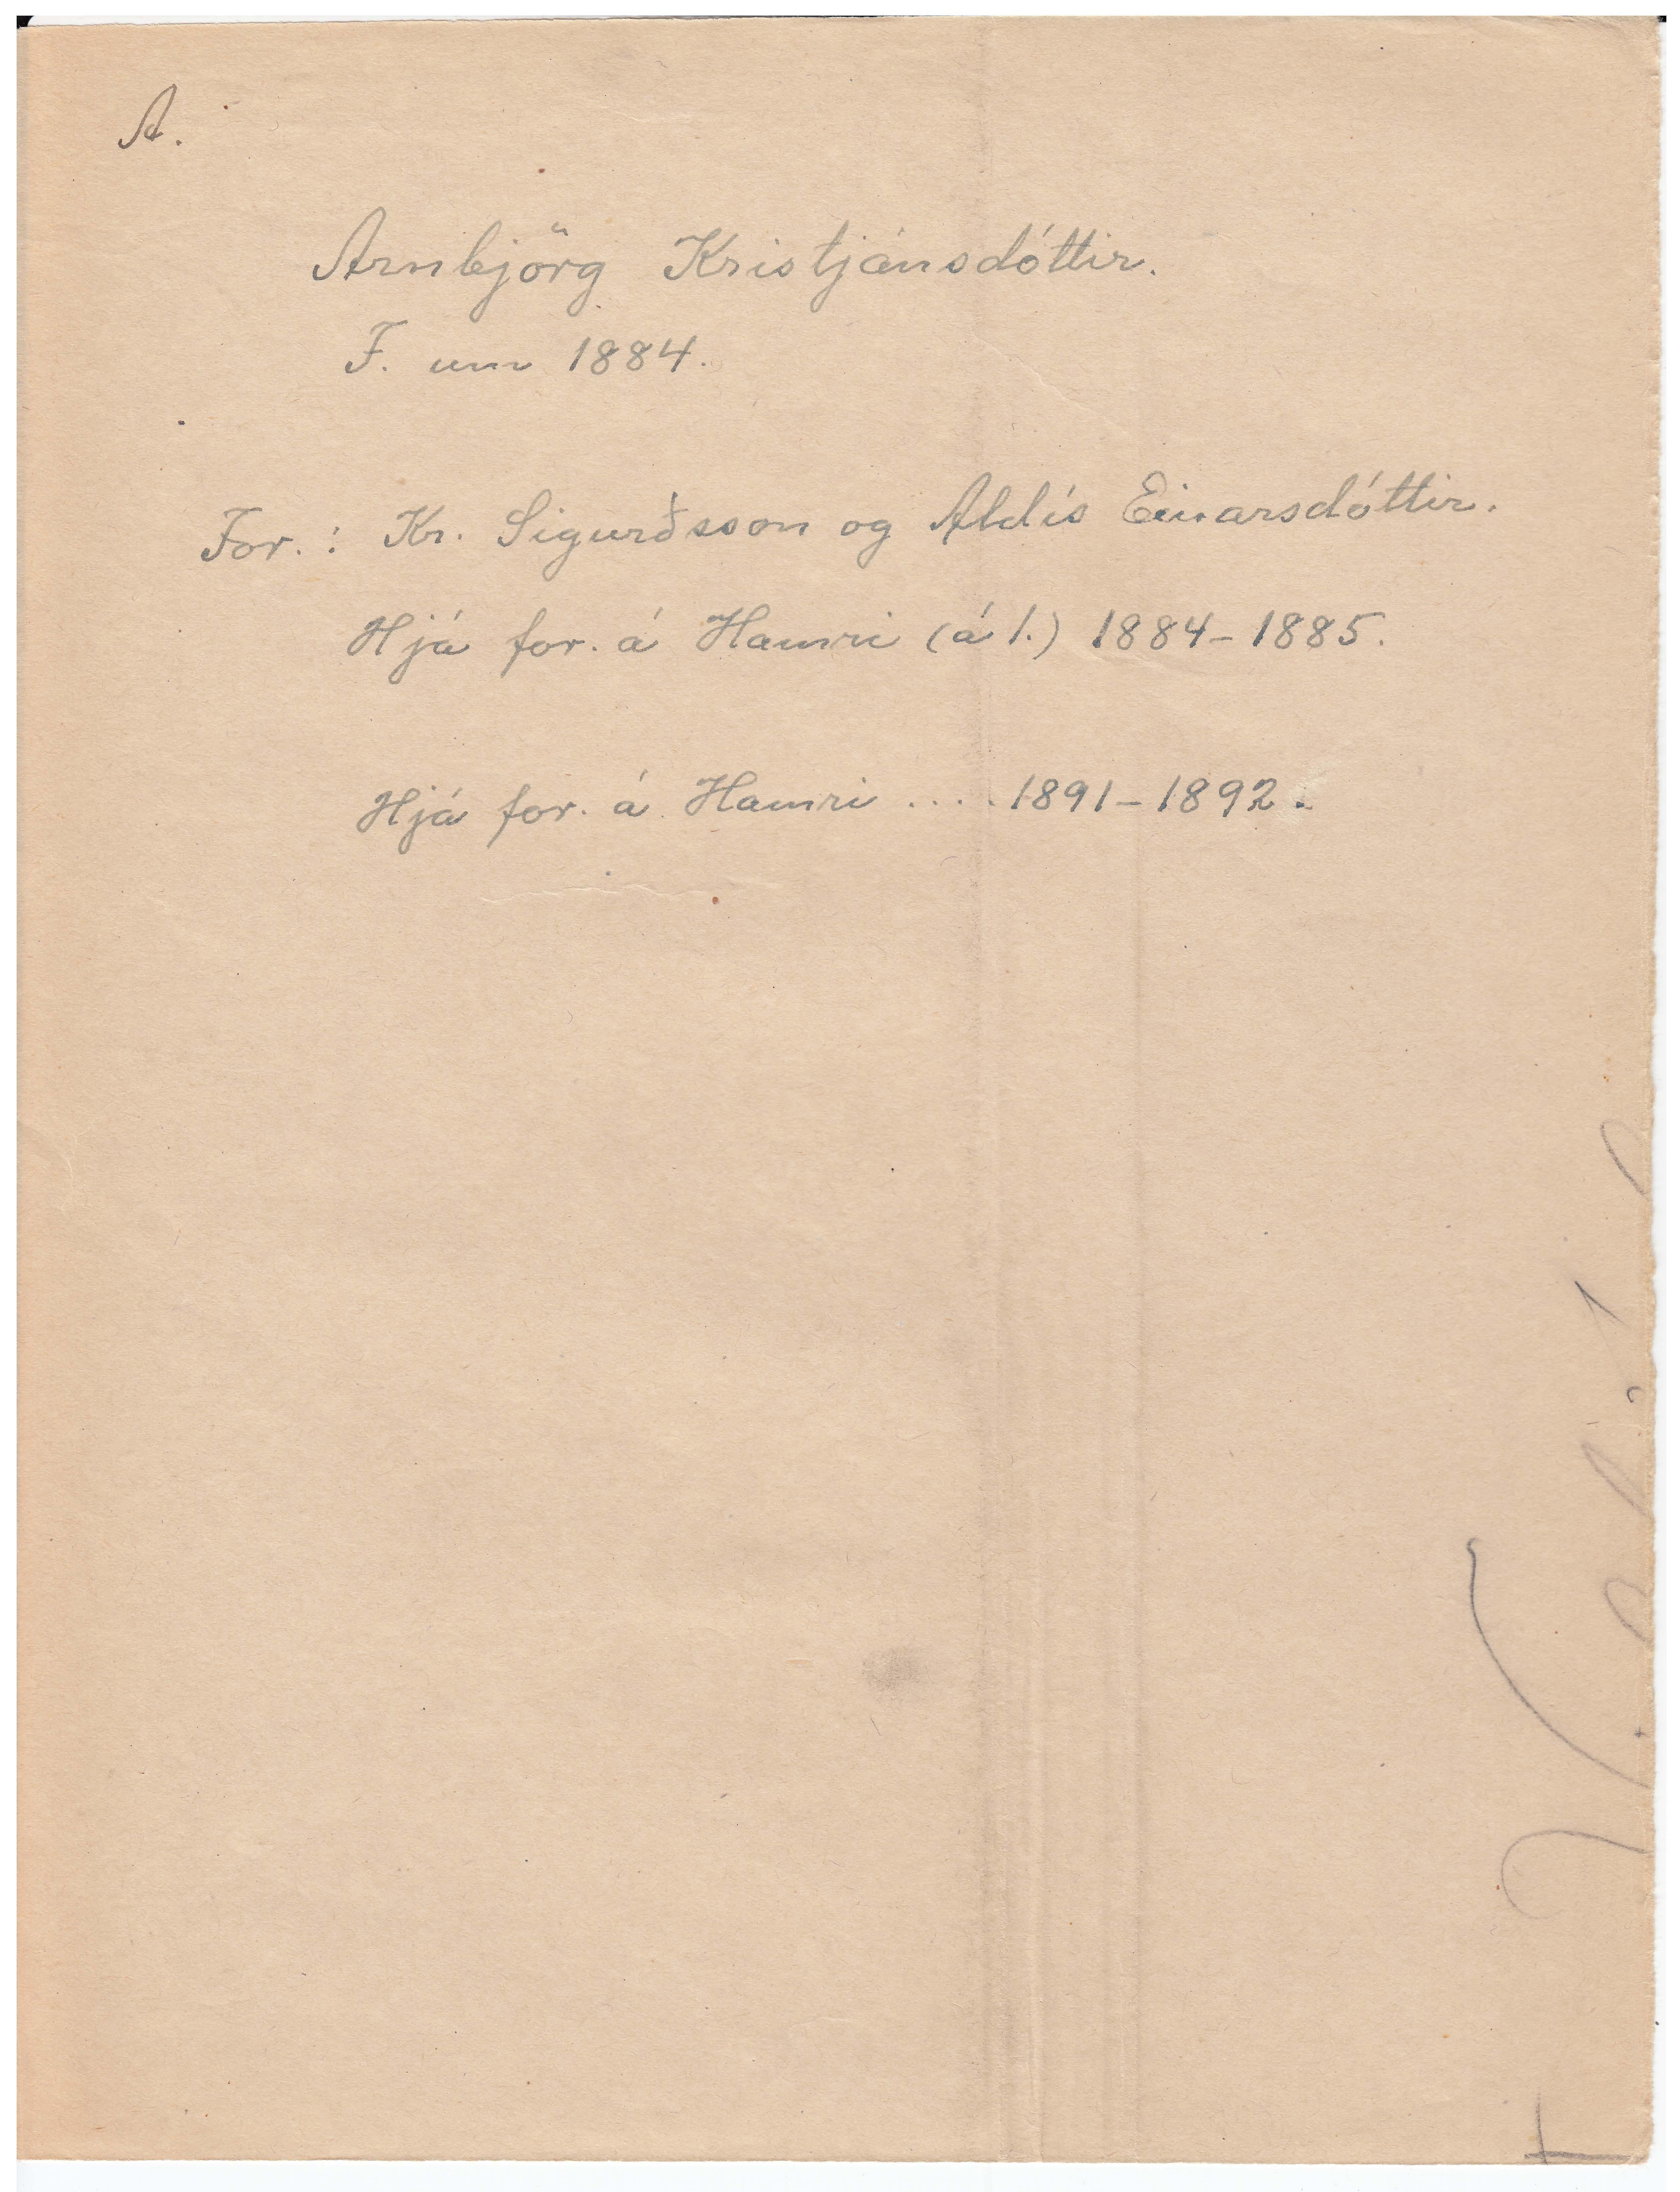 A.
Arnbjörg Kristjánsdóttir.
F. um 1884.
For.: Kr. Sigurðsson og Aldís Einarsdóttir.
Hjá for. á Hamri (á 1.) 1884-1885.
Hjá for. á Hamri .... 1891-1892.